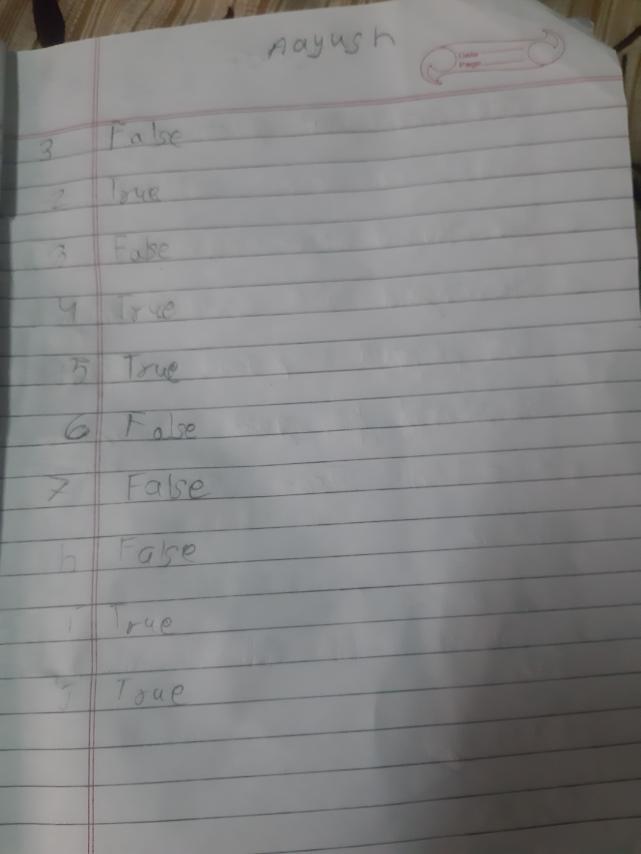 Aayush
Date
Page
3 False
2 True
3 False
4 True
5 True
6 False
7 False
h False
I True
J True